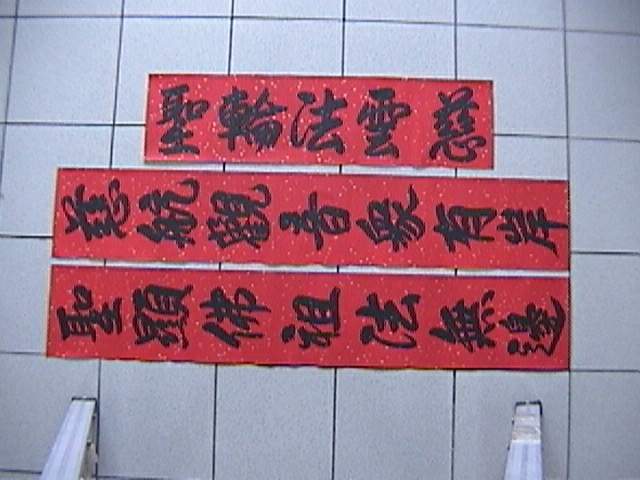 慈雲法輪聖
慈航觀音眾有岸
聖顯佛祖法無邊